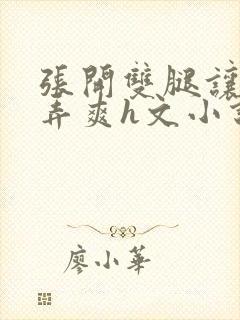 張開雙腿讓
弄爽h文小
廖小華